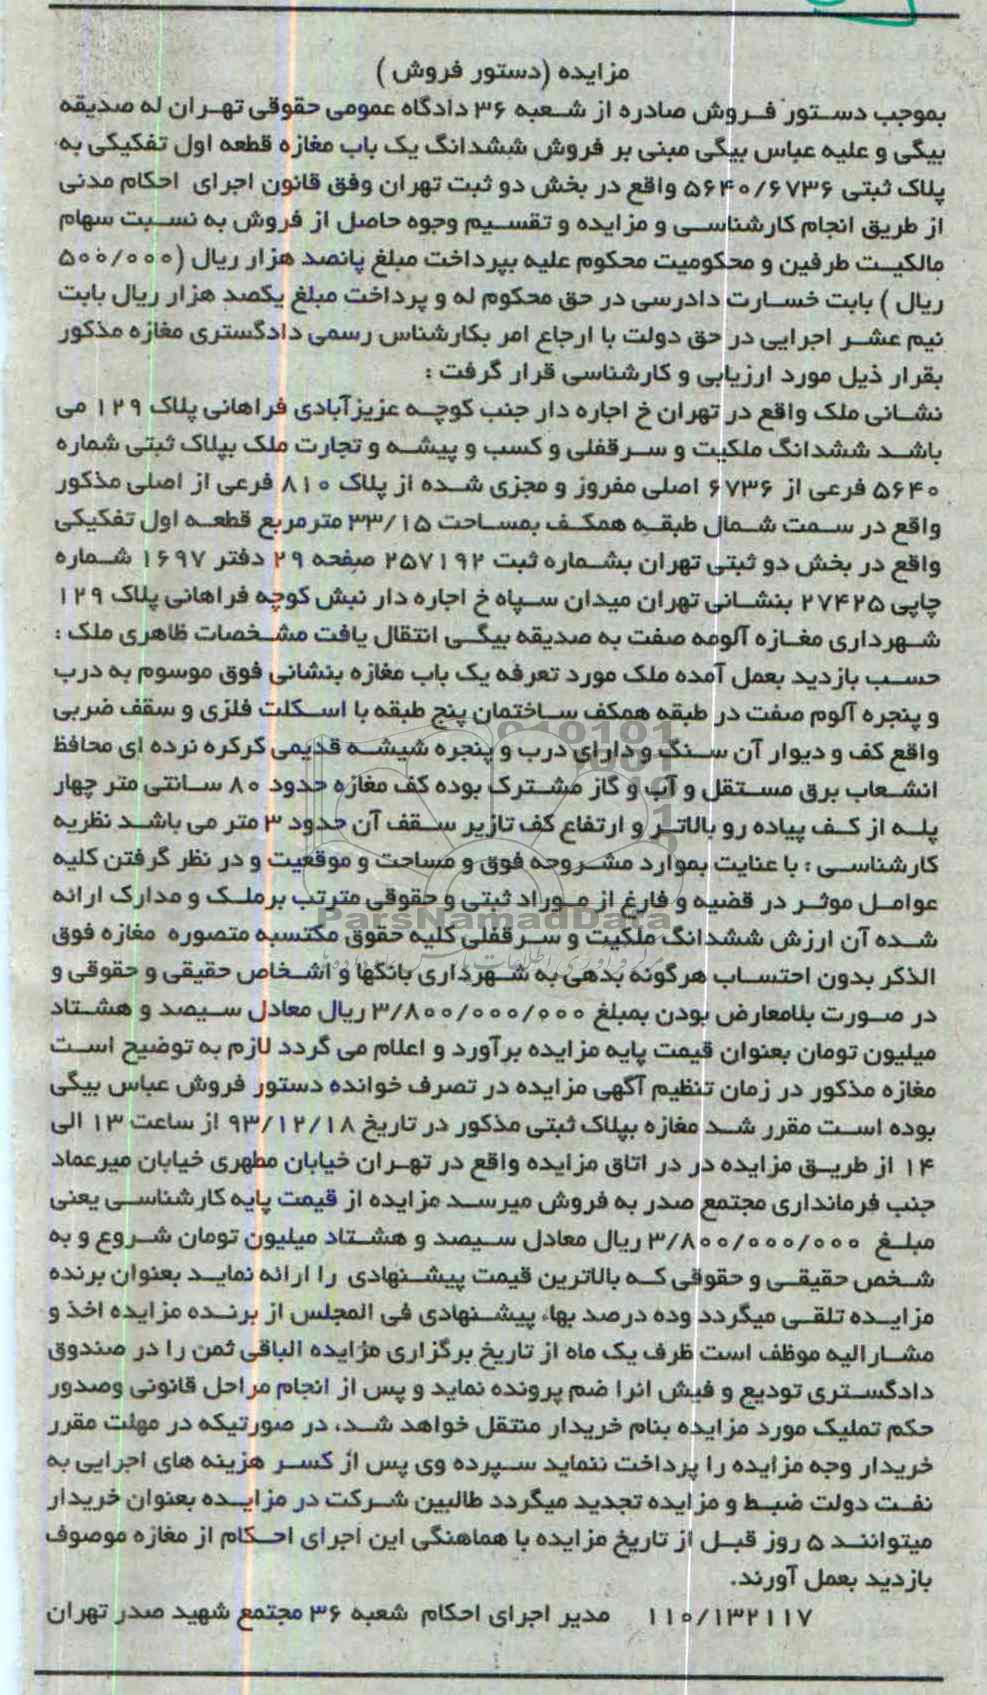 مزایده (دستور فروش )
بموجب دستور فروش صادره از شعبه ۳۶ دادگاه عمومی حقوقی تهران له صدیقه
بیگی و علیه عباس بیگی مبنی بر فروش ششدانگ یک باب مغازه قطعه اول تفکیکی به
پلاک ثبتی ۵۶۴۰/۶۷۳۶ واقع در بخش دو ثبت تهران وفق قانون اجرای احکام مدنی
از طریق انجام کارشناسی و مزایده و تقسیم وجوه حاصل از فروش به نسبت سهام
مالکیت طرفین و محکومیت محکوم علیه بپرداخت مبلغ پانصد هزار ریال (۵۰۰/۰۰۰
ریال ) بابت خسارت دادرسی در حق محکوم له و پرداخت مبلغ یکصد هزار ریال بابت
نیم عشر اجرایی در حق دولت با ارجاع امر بکارشناس رسمی دادگستری مغازه مذکور
بقرار ذیل مورد ارزیابی و کارشناسی قرار گرفت :
نشانی ملک واقع در تهران خ اجاره دار جنب کوچه عزیزآبادی فراهانی پلاک ۱۲۹ می
باشد ششدانگ ملکیت و سرقفلی و کسب و پیشه و تجارت ملک بپلاک ثبتی شماره
۵۶۴۰ فرعی از ۶۷۳۶ اصلی مفروز و مجزی شده از پلاک ۸۱۰ فرعی از اصلی مذکور
واقع در سمت شمال طبقه همکف بمساحت ۳۳/۱۵ مترمربع قطعه اول تفکیکی
واقع در بخش دو ثبتی تهران بشماره ثبت ۲۵۷۱۹۲ صفحه ۲۹ دفتر ۱۶۹۷ شماره
چاپی ۲۷۴۲۵ بنشانی تهران میدان سپاه خ اجاره دار نبش کوچه فراهانی پلاک ۱۲۹
شهرداری مغازه آلومه صفت به صدیقه بیگی انتقال یافت مشخصات ظاهری ملک :
حسب بازدید بعمل آمده ملک مورد تعرفه یک باب مغازه بنشانی فوق موسوم به درب
و پنجره آلوم صفت در طبقه همکف ساختمان پنج طبقه با اسکلت فلزی و سقف ضربی
واقع کف و دیوار آن سنگ و دارای درب و پنجره شیشه قدیمی کرکره نرده ای محافظ
انشعاب برق مستقل و آب و گاز مشترک بوده کف مغازه حدود ۸۰ سانتی متر چهار
پله از کف پیاده رو بالاتر و ارتفاع کف تازیر سقف آن حدود ۳ متر می باشد نظریه
کارشناسی : با عنایت بموارد مشروحه فوق و مساحت و موقعیت و در نظر گرفتن کلیه
عوامل موثر در قضیه و فارغ از موراد ثبتی و حقوقی مترتب برملک و مدارک ارائه
شده آن ارزش ششدانگ ملکیت و سرقفلی کلیه حقوق مکتسبه متصوره مغازه فوق
الذکر بدون احتساب هرگونه بدهی به شهرداری بانکها و اشخاص حقیقی و حقوقی و
در صورت بلامعارض بودن بمبلغ ۳/۸۰۰/۰۰۰/۰۰۰ ریال معادل سیصد و هشتاد
میلیون تومان بعنوان قیمت پایه مزایده برآورد و اعلام می گردد لازم به توضیح است
مغازه مذکور در زمان تنظیم آگهی مزایده در تصرف خوانده دستور فروش عباس بیگی
بوده است مقرر شد مغازه بپلاک ثبتی مذکور در تاریخ ۹۳/۱۲/۱۸ از ساعت ۱۳ الی
۱۴ از طریق مزایده در در اتاق مزایده واقع در تهران خیابان مطهری خیابان میرعماد
جنب فرمانداری مجتمع صدر به فروش میرسد مزایده از قیمت پایه کارشناسی یعنی
مبلغ ۳/۸۰۰/۰۰۰/۰۰۰ ریال معادل سیصد و هشتاد میلیون تومان شروع و به
شخص حقیقی و حقوقی که بالاترین قیمت پیشنهادی را ارائه نماید بعنوان برنده
مزایده تلقی میگردد وده درصد بهاء پیشنهادی فی المجلس از برنده مزایده اخذ و
مشارالیه موظف است ظرف یک ماه از تاریخ برگزاری مزایده الباقی ثمن را در صندوق
دادگستری تودیع و فیش انرا ضم پرونده نماید و پس از انجام مراحل قانونی وصدور
حکم تملیک مورد مزایده بنام خریدار منتقل خواهد شد، در صورتیکه در مهلت مقرر
خریدار وجه مزایده را پرداخت ننماید سپرده وی پس از کسر هزینه های اجرایی به
نفت دولت ضبط و مزایده تجدید میگردد طالبین شرکت در مزایده بعنوان خریدار
میتوانند ۵ روز قبل از تاریخ مزایده با هماهنگی این اجرای احکام از مغازه موصوف
بازدید بعمل آورند.
۱۱۰/۱۳۲۱۱۷ مدیر اجرای احکام شعبه ۳۶ مجتمع شهید صدر تهران
ParsNamadData